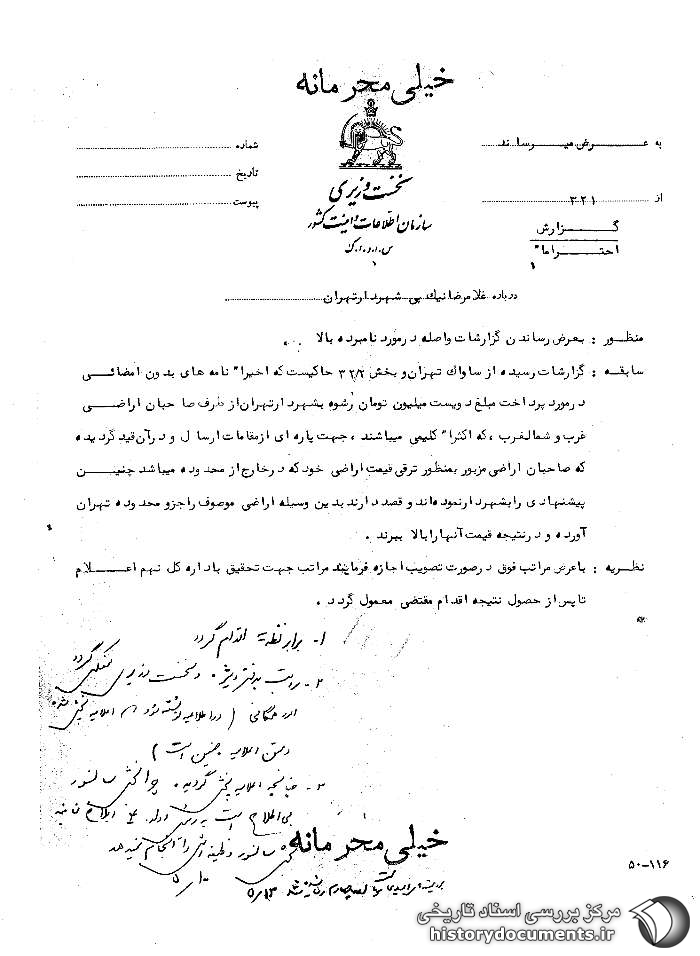 خیلی محرمانه
به عرض میرساند
شماره
تاریخ
نخست وزیری
از ۳۲۱
پیوست
سازمان اطلاعات و امنیت کشور
س.ا.و.ا.ک
گزارش
احتراما"
درباره غلامرضا نیک پی شهردار تهران
منظور : بعرض رساندن گزارشات واصله در مورد نامبرده بالا .
سابقه : گزارشات رسیده از ساواک تهران و بخش ۳۲/۲ حاکیست که اخیرا" نامه های بدون امضائی
در مورد پرداخت مبلغ دویست میلیون تومان رشوه بشهردار تهران از طرف صاحبان اراضی
غرب و شمالغرب ، که اکثرا" کلیمی میباشند ، جهت پاره ای از مقامات ارسال و در آن قید گردیده
که صاحبان اراضی مزبور بمنظور ترقی قیمت اراضی خود که در خارج از محدوده میباشد چنیـن
پیشنهادی را بشهردار نموده اند و قصد دارند بدین وسیله اراضی موصوف را جزو محدوده تهران
آورده و در نتیجه قیمت آنها را بالا ببرند .
نظریه : با عرض مراتب فوق در صورت تصویب اجازه فرمایند مراتب جهت تحقیق باداره کل نهم اعـلام
تا پس از حصول نتیجه اقدام مقتضی معمول گردد .
۱- برابر نظریه اقدام گردد
۲- دفتر ویژه و نخست وزیری منعکس گردد
(
است )
۳- چنانچه اعلامیه پخش گردیده . چرا بخش سانسور
بی اطلاع است
سانسور وظیفه اش را انجام نمیدهد
خیلی محرمانه
۵۰-۱۱۶
مرکز بررسی اسناد تاریخی
historydocuments.ir